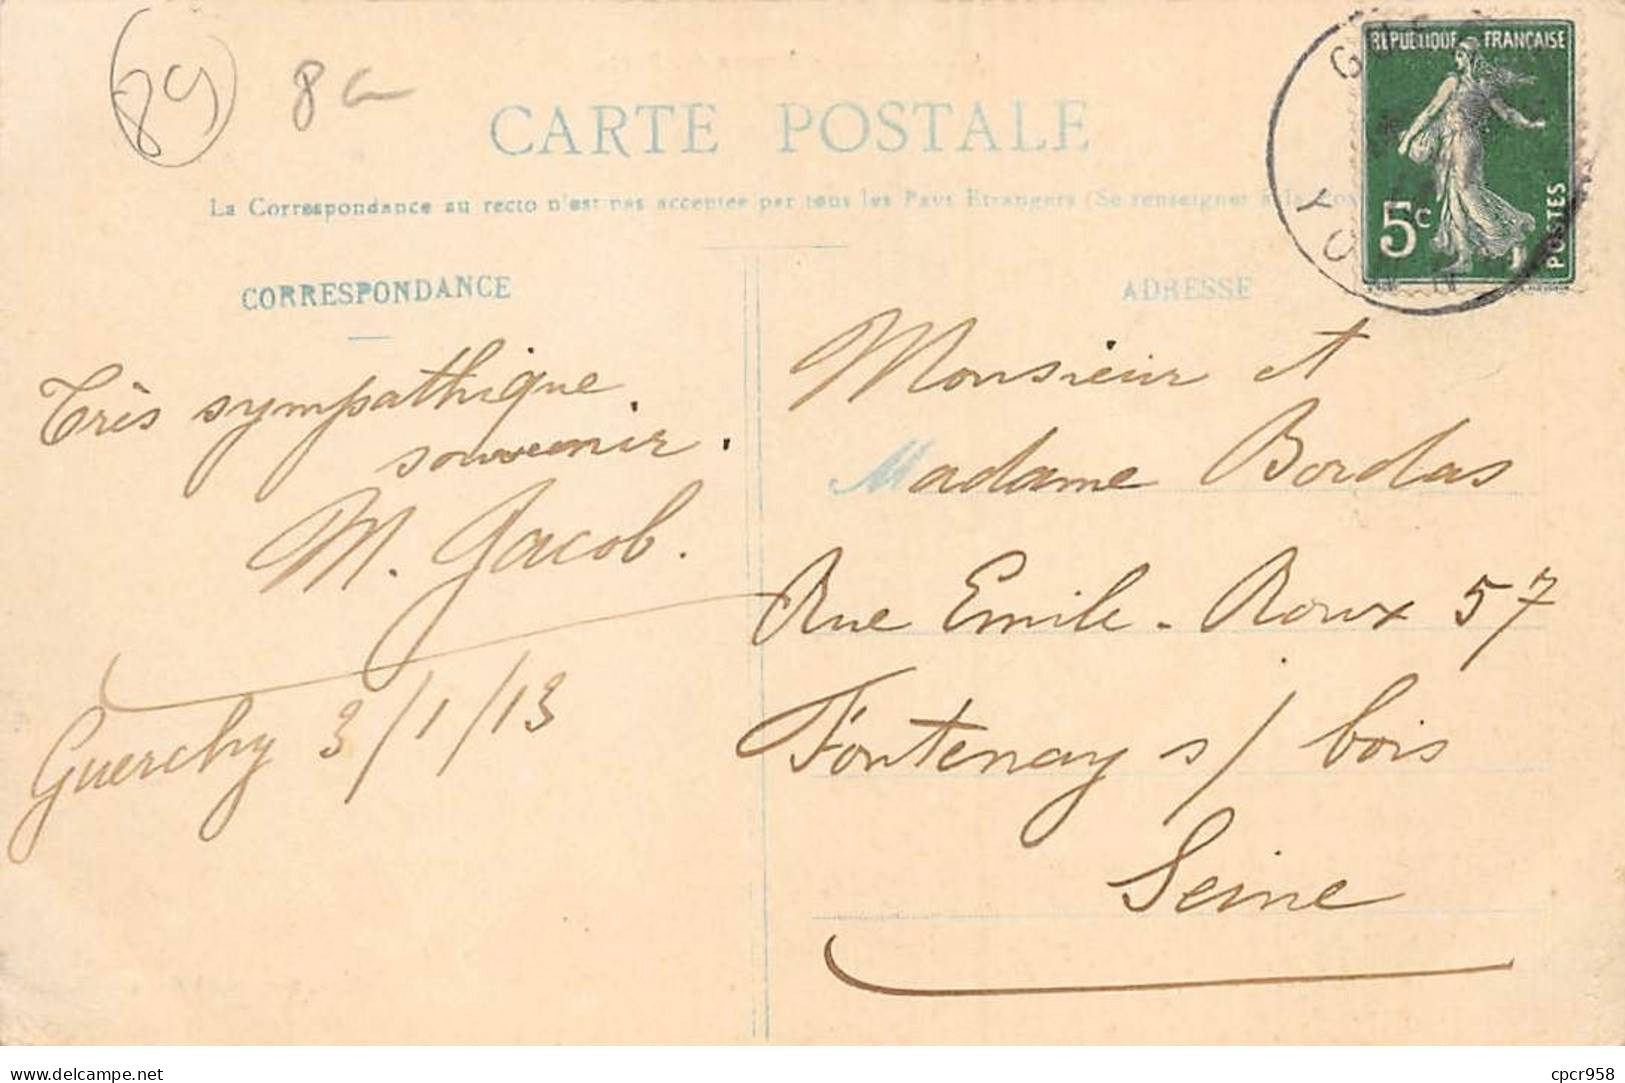 89
8
CARTE POSTALE
La Correspondance au recto n'est pas acceptée par tous les Pays Etrangers (Se renseigner à la
CORRESPONDANCE
ADRESSE
REPUBLIQUE FRANÇAISE
5c
POSTES
Très sympathique
souvenir.
M. Jacob.
Guerchy 3/1/13
Monsieur et
Madame Bordas
Rue Emile-Roux 57
Fontenay s/ bois
Seine
delcampe.net
cpcr958